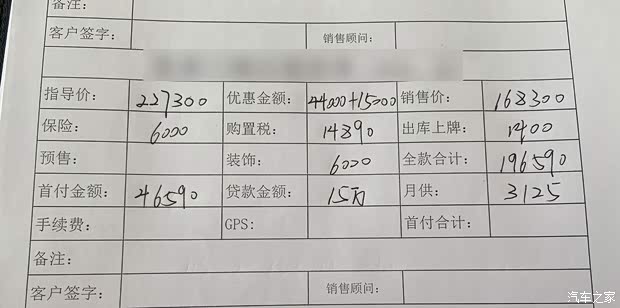 备注:
客户签字: 销售顾问:
指导价: 227300 优惠金额: 44000+15000 销售价: 168300
保险: 6000 购置税: 14890 出库上牌: 1400
预售: 装饰: 6000 全款合计: 196590
首付金额: 46590 贷款金额: 15万 月供: 3125
手续费: GPS: 首付合计:
备注:
客户签字: 销售顾问:
汽车之家